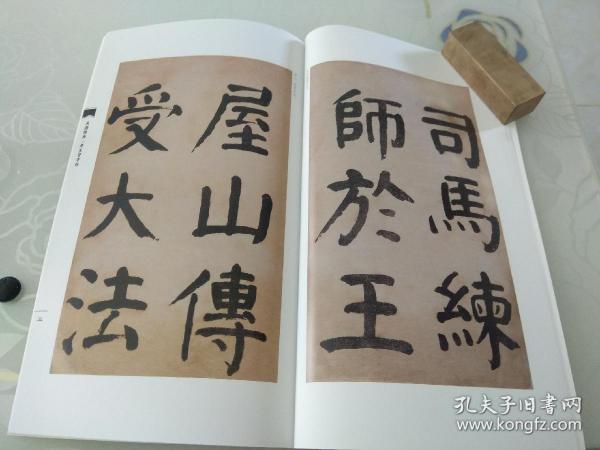 司馬練
師於王
屋山傳
受大法
孔夫子旧书网
www.kongfz.com